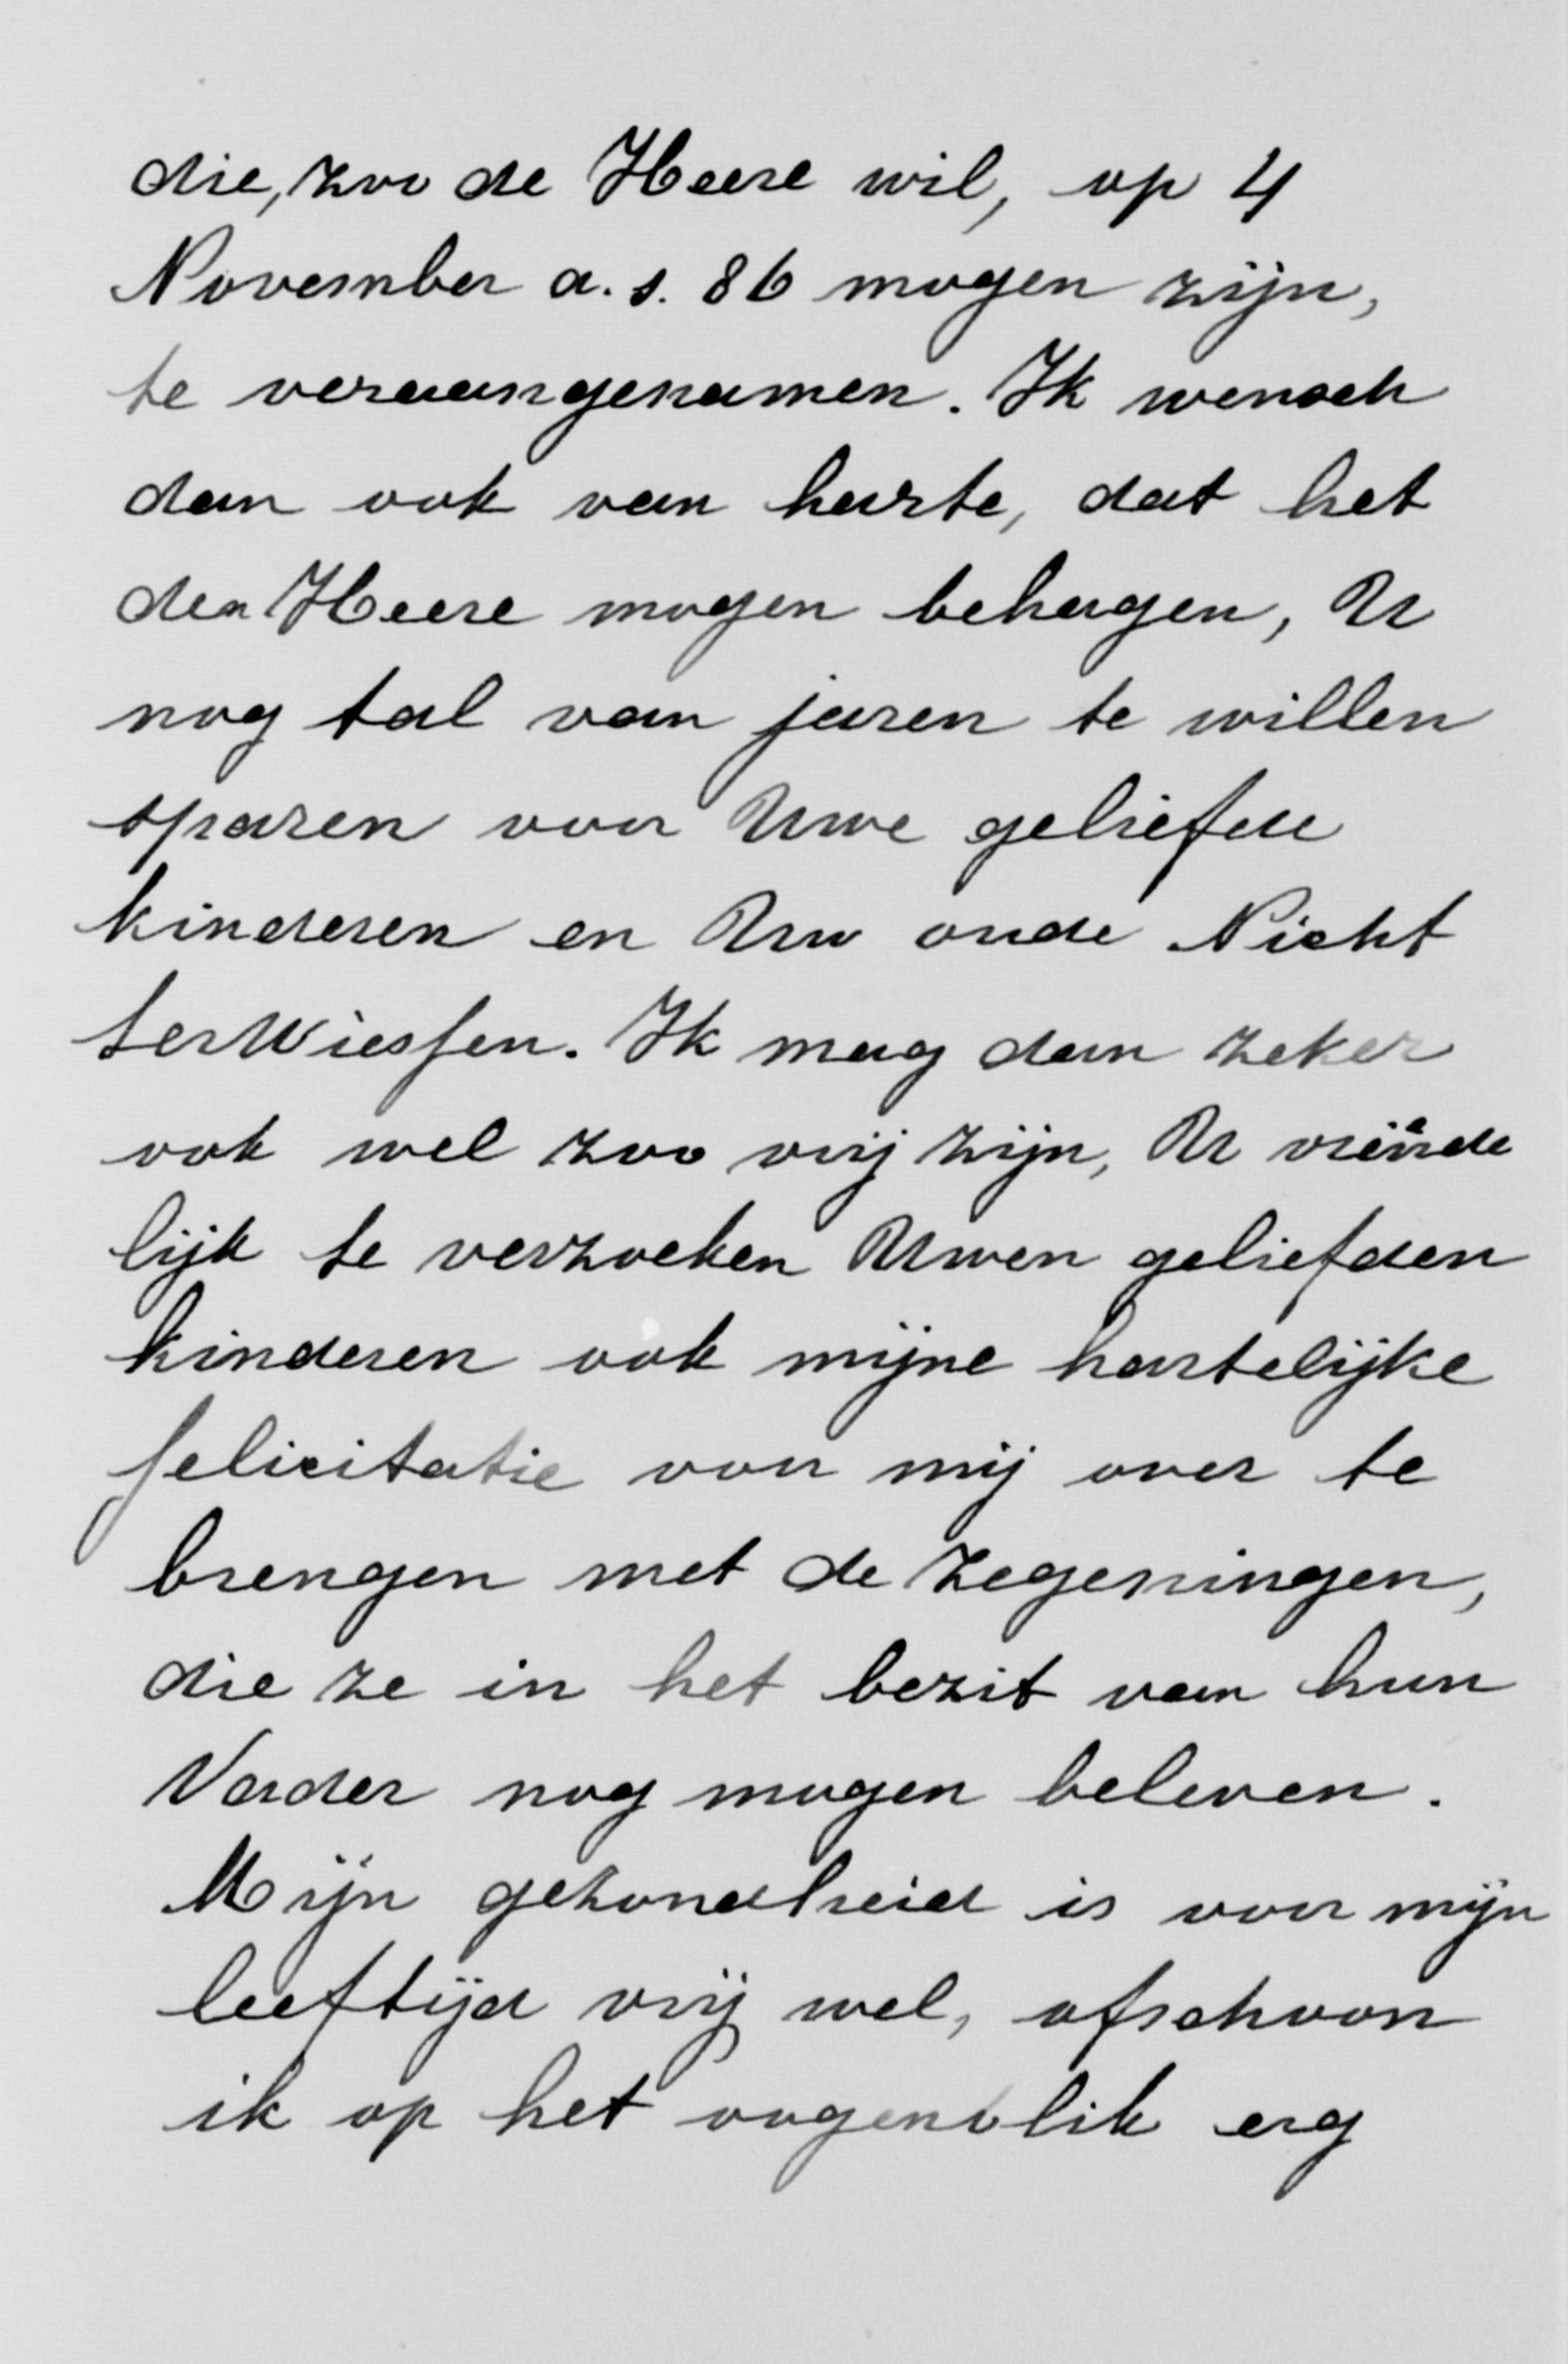 die, zoo de Heere wil, op 4
November a.s. 86 mogen zijn,
te veraangenamen. Ik wensch
dan ook van harte, dat het
den Heere mogen behagen, U
nog tal van jaren te willen
sparen voor Uwe geliefde
kinderen en Uw oude Nicht
ter Wiesfen. Ik mag dan zeker
ook wel zoo vrij zijn, U vriende
lijk te verzoeken Uwen geliefden
kinderen ook mijne hartelijke
felicitatie voor mij over te
brengen met de zegeningen,
die ze in het bezit van hun
Vader nog mogen beleven.
Mijn gezondheid is voor mijn
leeftijd vrij wel, ofschoon
ik op het oogenblik erg